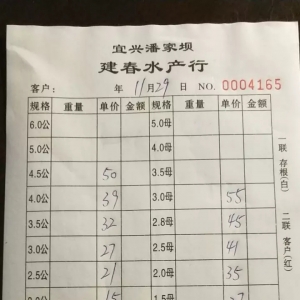 宜兴潘家坝
建春水产行
客户: 年 11月29日 NO. 0004165
规格 重量 单价 金额 规格 重量 单价 金额
6.0公 5.0母
5.0公
4.5公 50
4.0公 39 3.0母 55
3.5公 32 2.8母 45
3.0公 27 2.5母 41
2.5公 21 2.0母 35
2.0公 15
一联 存根(白)
二联 客户(红)